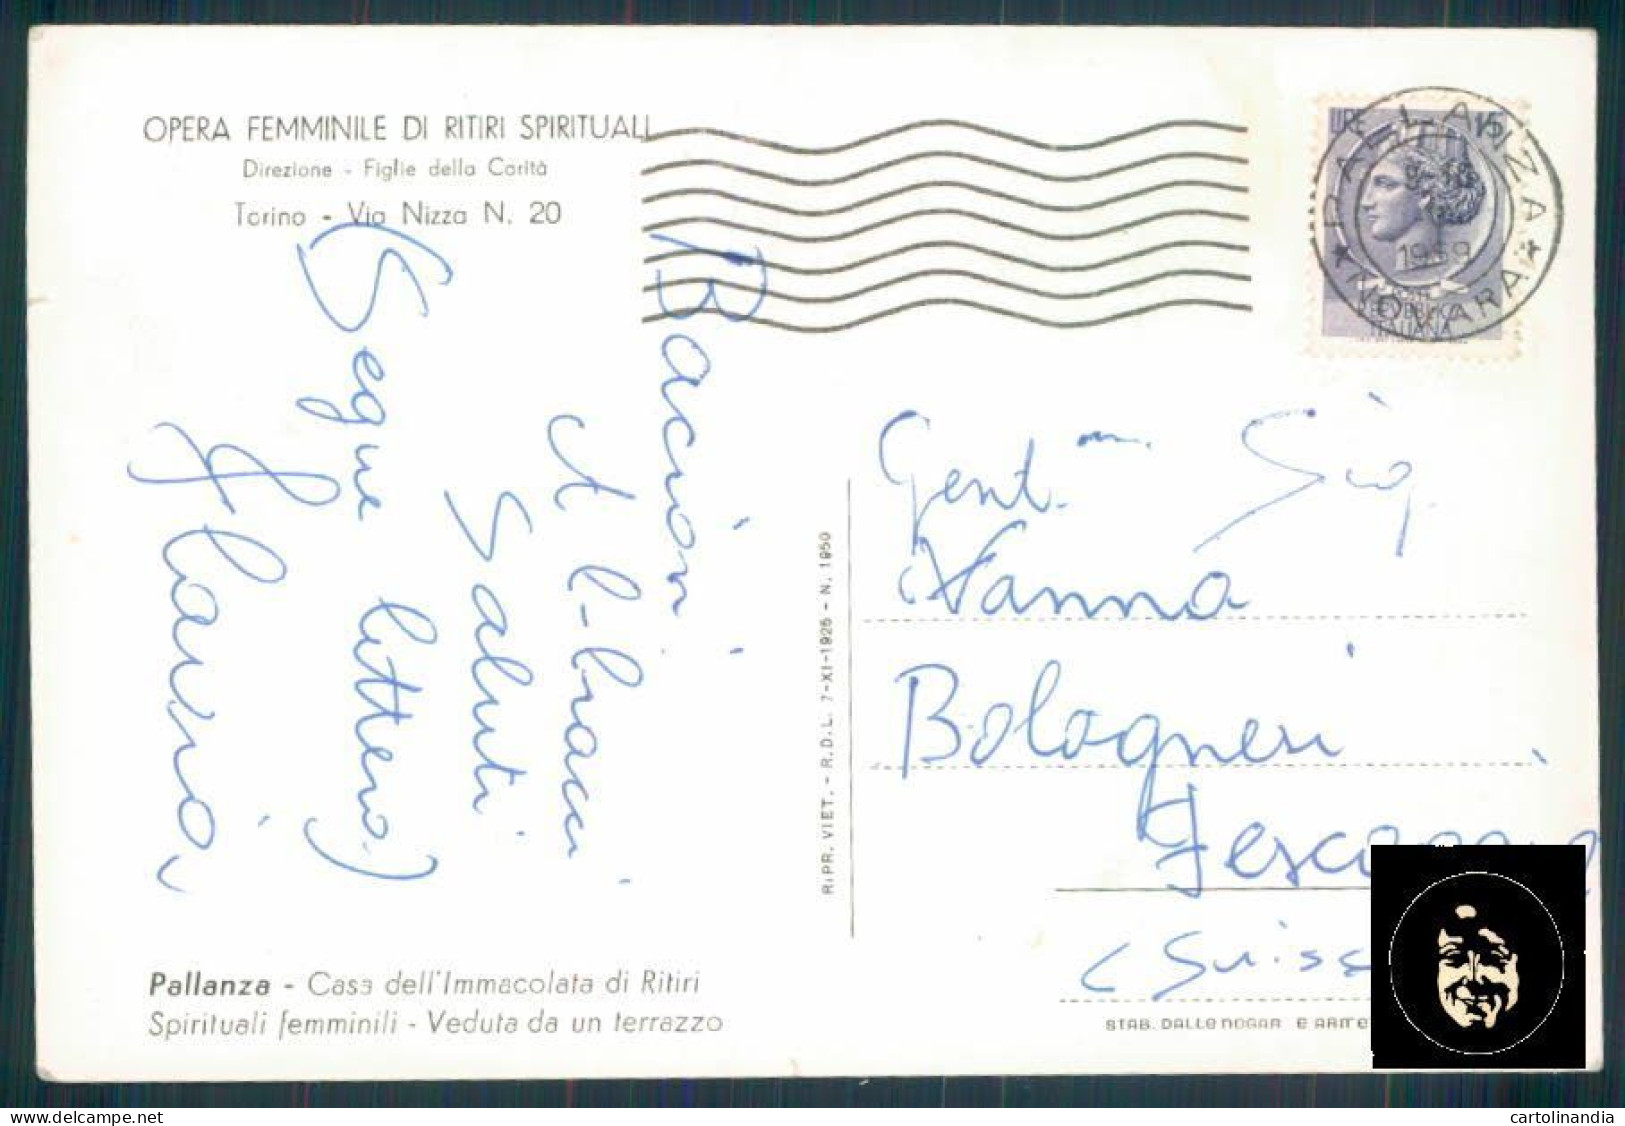 OPERA FEMMINILE DI RITIRI SPIRITUALI
Direzione - Figlie della Carità
Torino - Via Nizza N. 20
LIRE 15
POSTE
REPUBBLICA
ITALIANA
PALLANZA
1959
* NOVARA *
Bacioni
A l-bracci
Saluti
(Segue lettera)
Flavia
Gent.ma Sig.
Nanna
Bologneri
(Suiss
RIPR. VIET. - R.D.L. 7-XI-1925 - N. 1950
Pallanza - Casa dell'Immacolata di Ritiri
Spirituali femminili - Veduta da un terrazzo
STAB. DALLE NOGAR E ARME
www.delcampe.net
cartolinandia